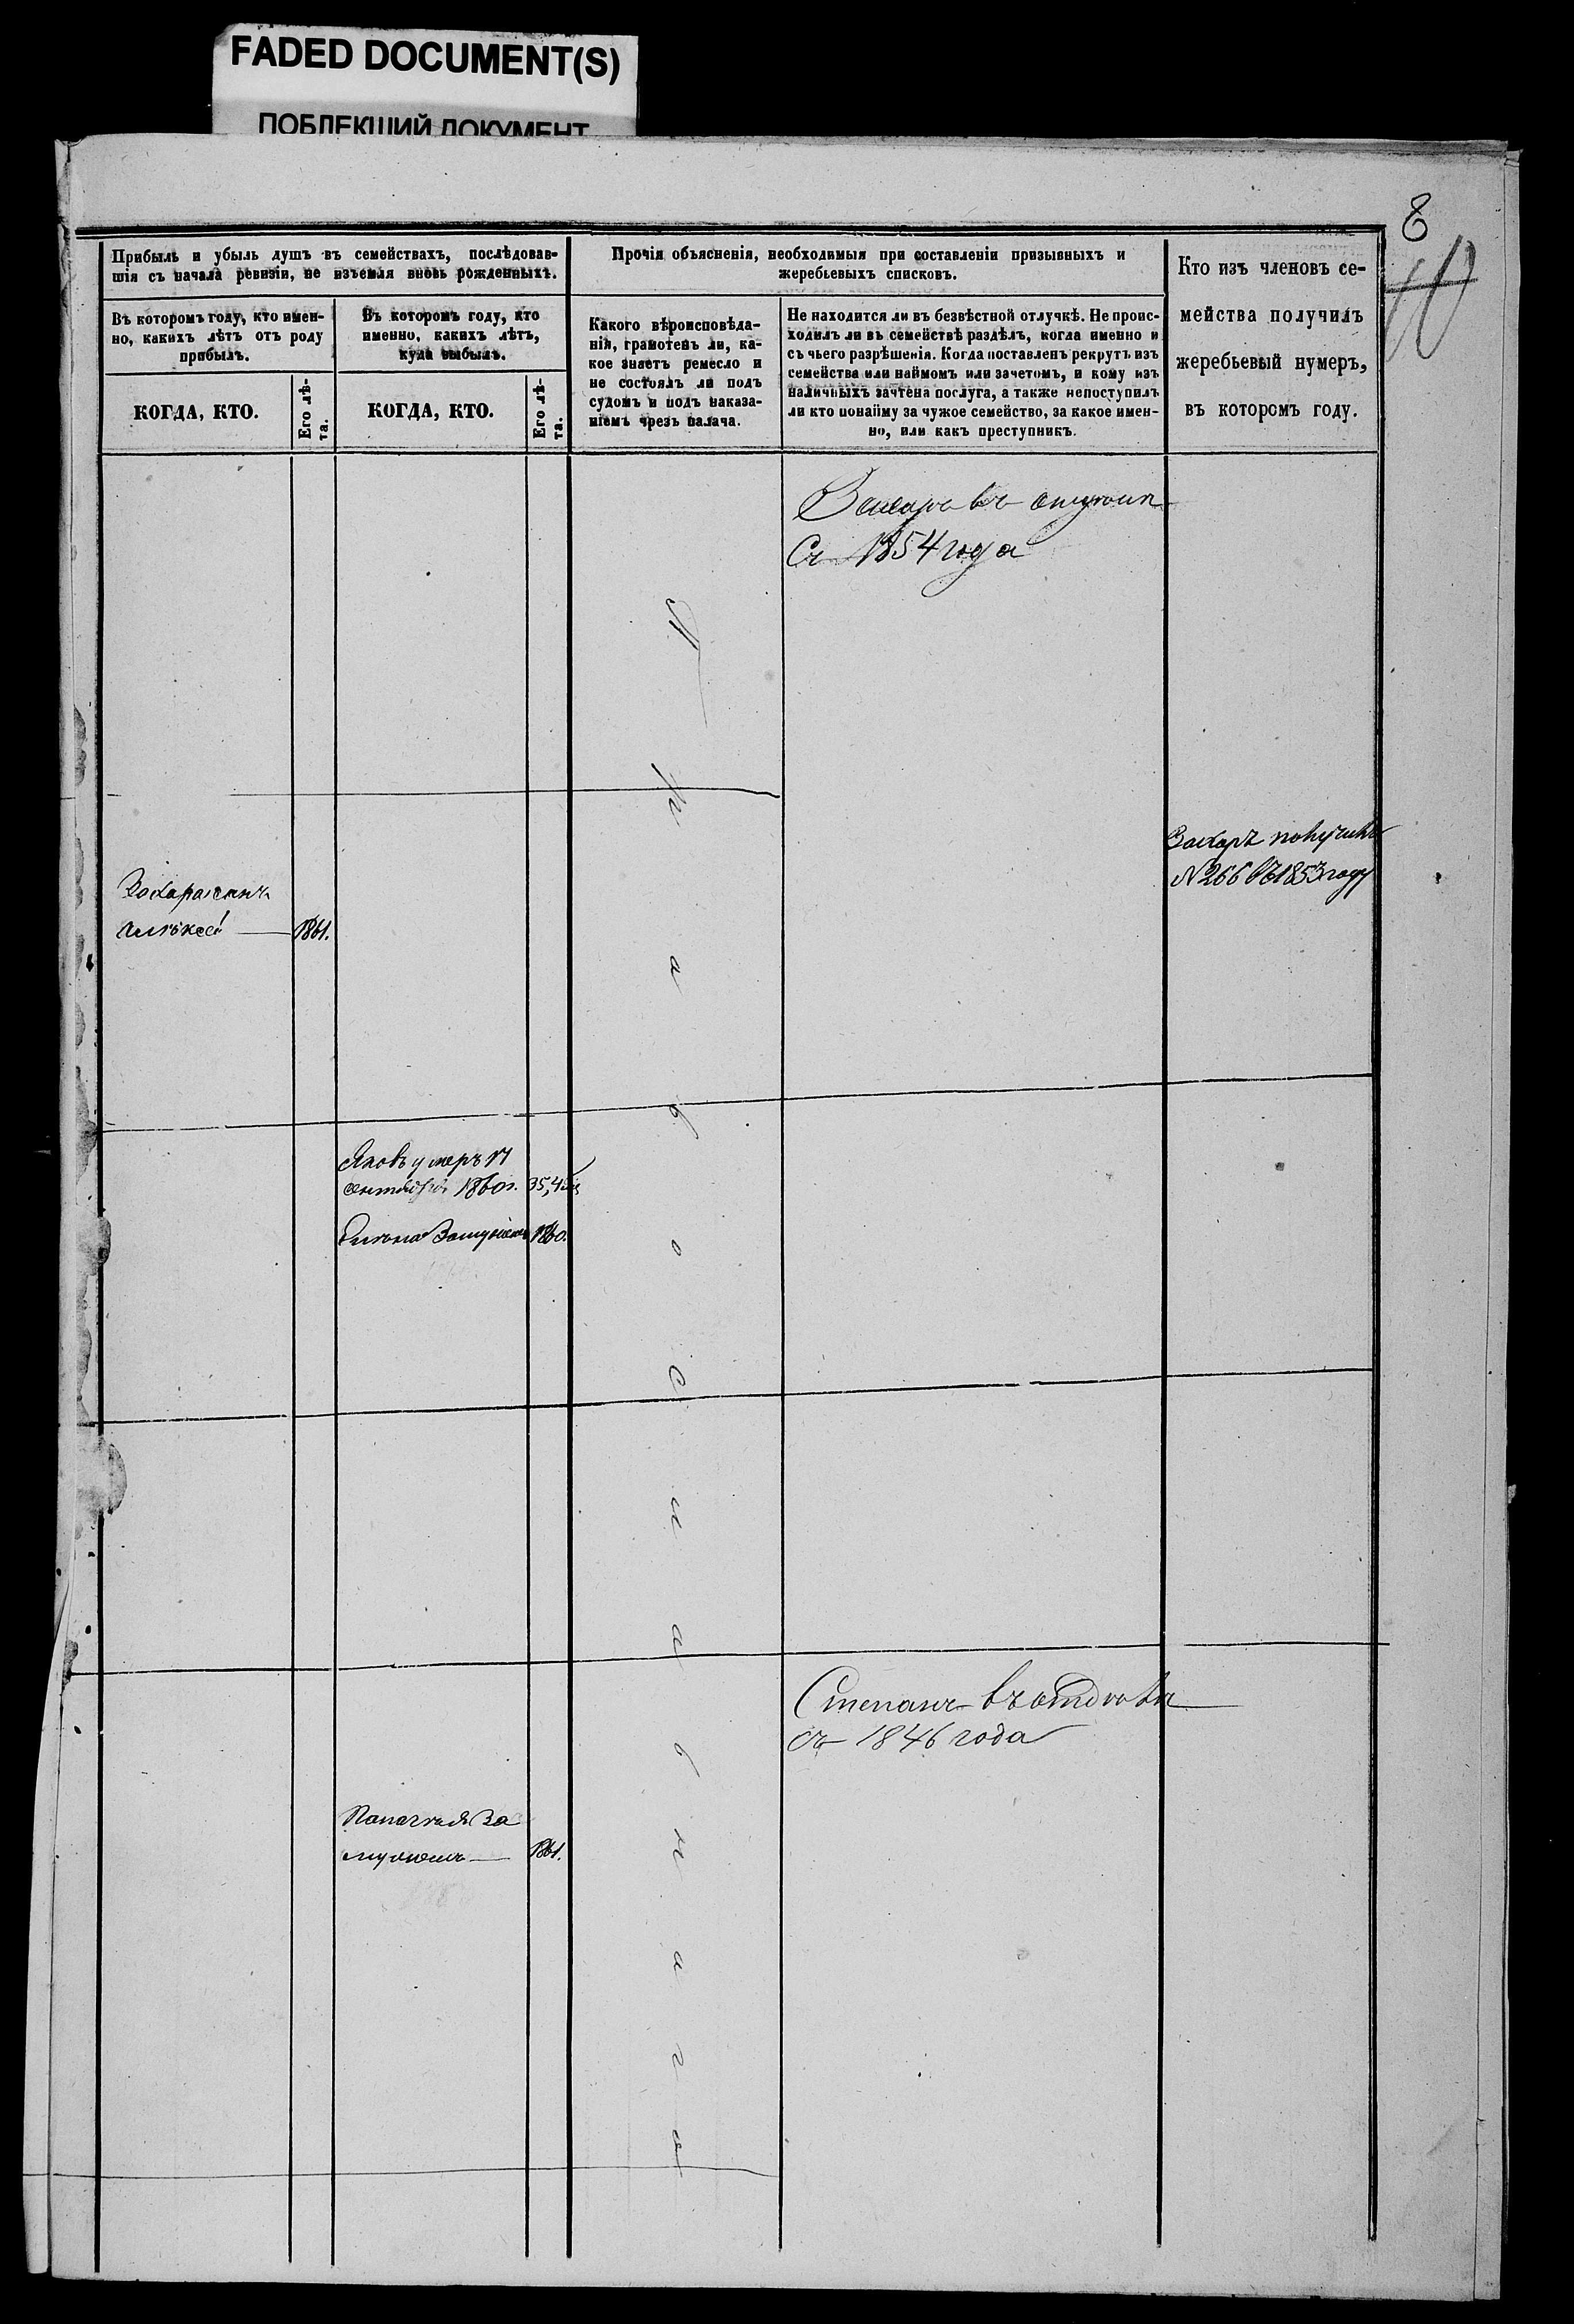 FADED DOCUMENT(S)
ПОБЛЕКШИЙ ДОКУМЕНТ
8
Прибыль и убыль душъ въ семействахъ, послѣдовав-
шія съ начала ревизіи, не изъемля вновь рожденныхъ.
Въ которомъ году, кто имен-
но, какихъ лѣтъ отъ роду
прибылъ.
Въ которомъ году, кто
именно, какихъ лѣтъ,
куда выбылъ.
КОГДА, КТО.
Его лѣ-
та.
КОГДА, КТО.
Его лѣ-
та.
Прочія объясненія, необходимыя при составленіи призывныхъ и
жеребьевыхъ списковъ.
Какого вѣроисповѣда-
нія, грамотенъ ли, ка-
кое знаетъ ремесло и
не состоялъ ли подъ
судомъ и подъ наказа-
ніемъ чрезъ палача.
Не находится ли въ безвѣстной отлучкѣ. Не проис-
ходилъ ли въ семействѣ раздѣлъ, когда именно и
съ чьего разрѣшенія. Когда поставленъ рекрутъ изъ
семейства или наймомъ или зачетомъ, и кому изъ
наличныхъ зачтена послуга, а также непоступилъ
ли кто понайму за чужое семейство, за какое имен-
но, или какъ преступникъ.
Кто изъ членовъ се-
мейства получилъ
жеребьевый нумеръ,
въ которомъ году.
Захаръ въ
Съ 1854 года
Захаръ получилъ
№ 266 въ 1853 году
Захара сынъ
Алексѣй 1861.
Яковъ умеръ 17
сентября 1860 г. 35,4
Замужемъ 1860.
Православнаго
Степанъ въ
съ 1846 года
За
мужемъ 1861.